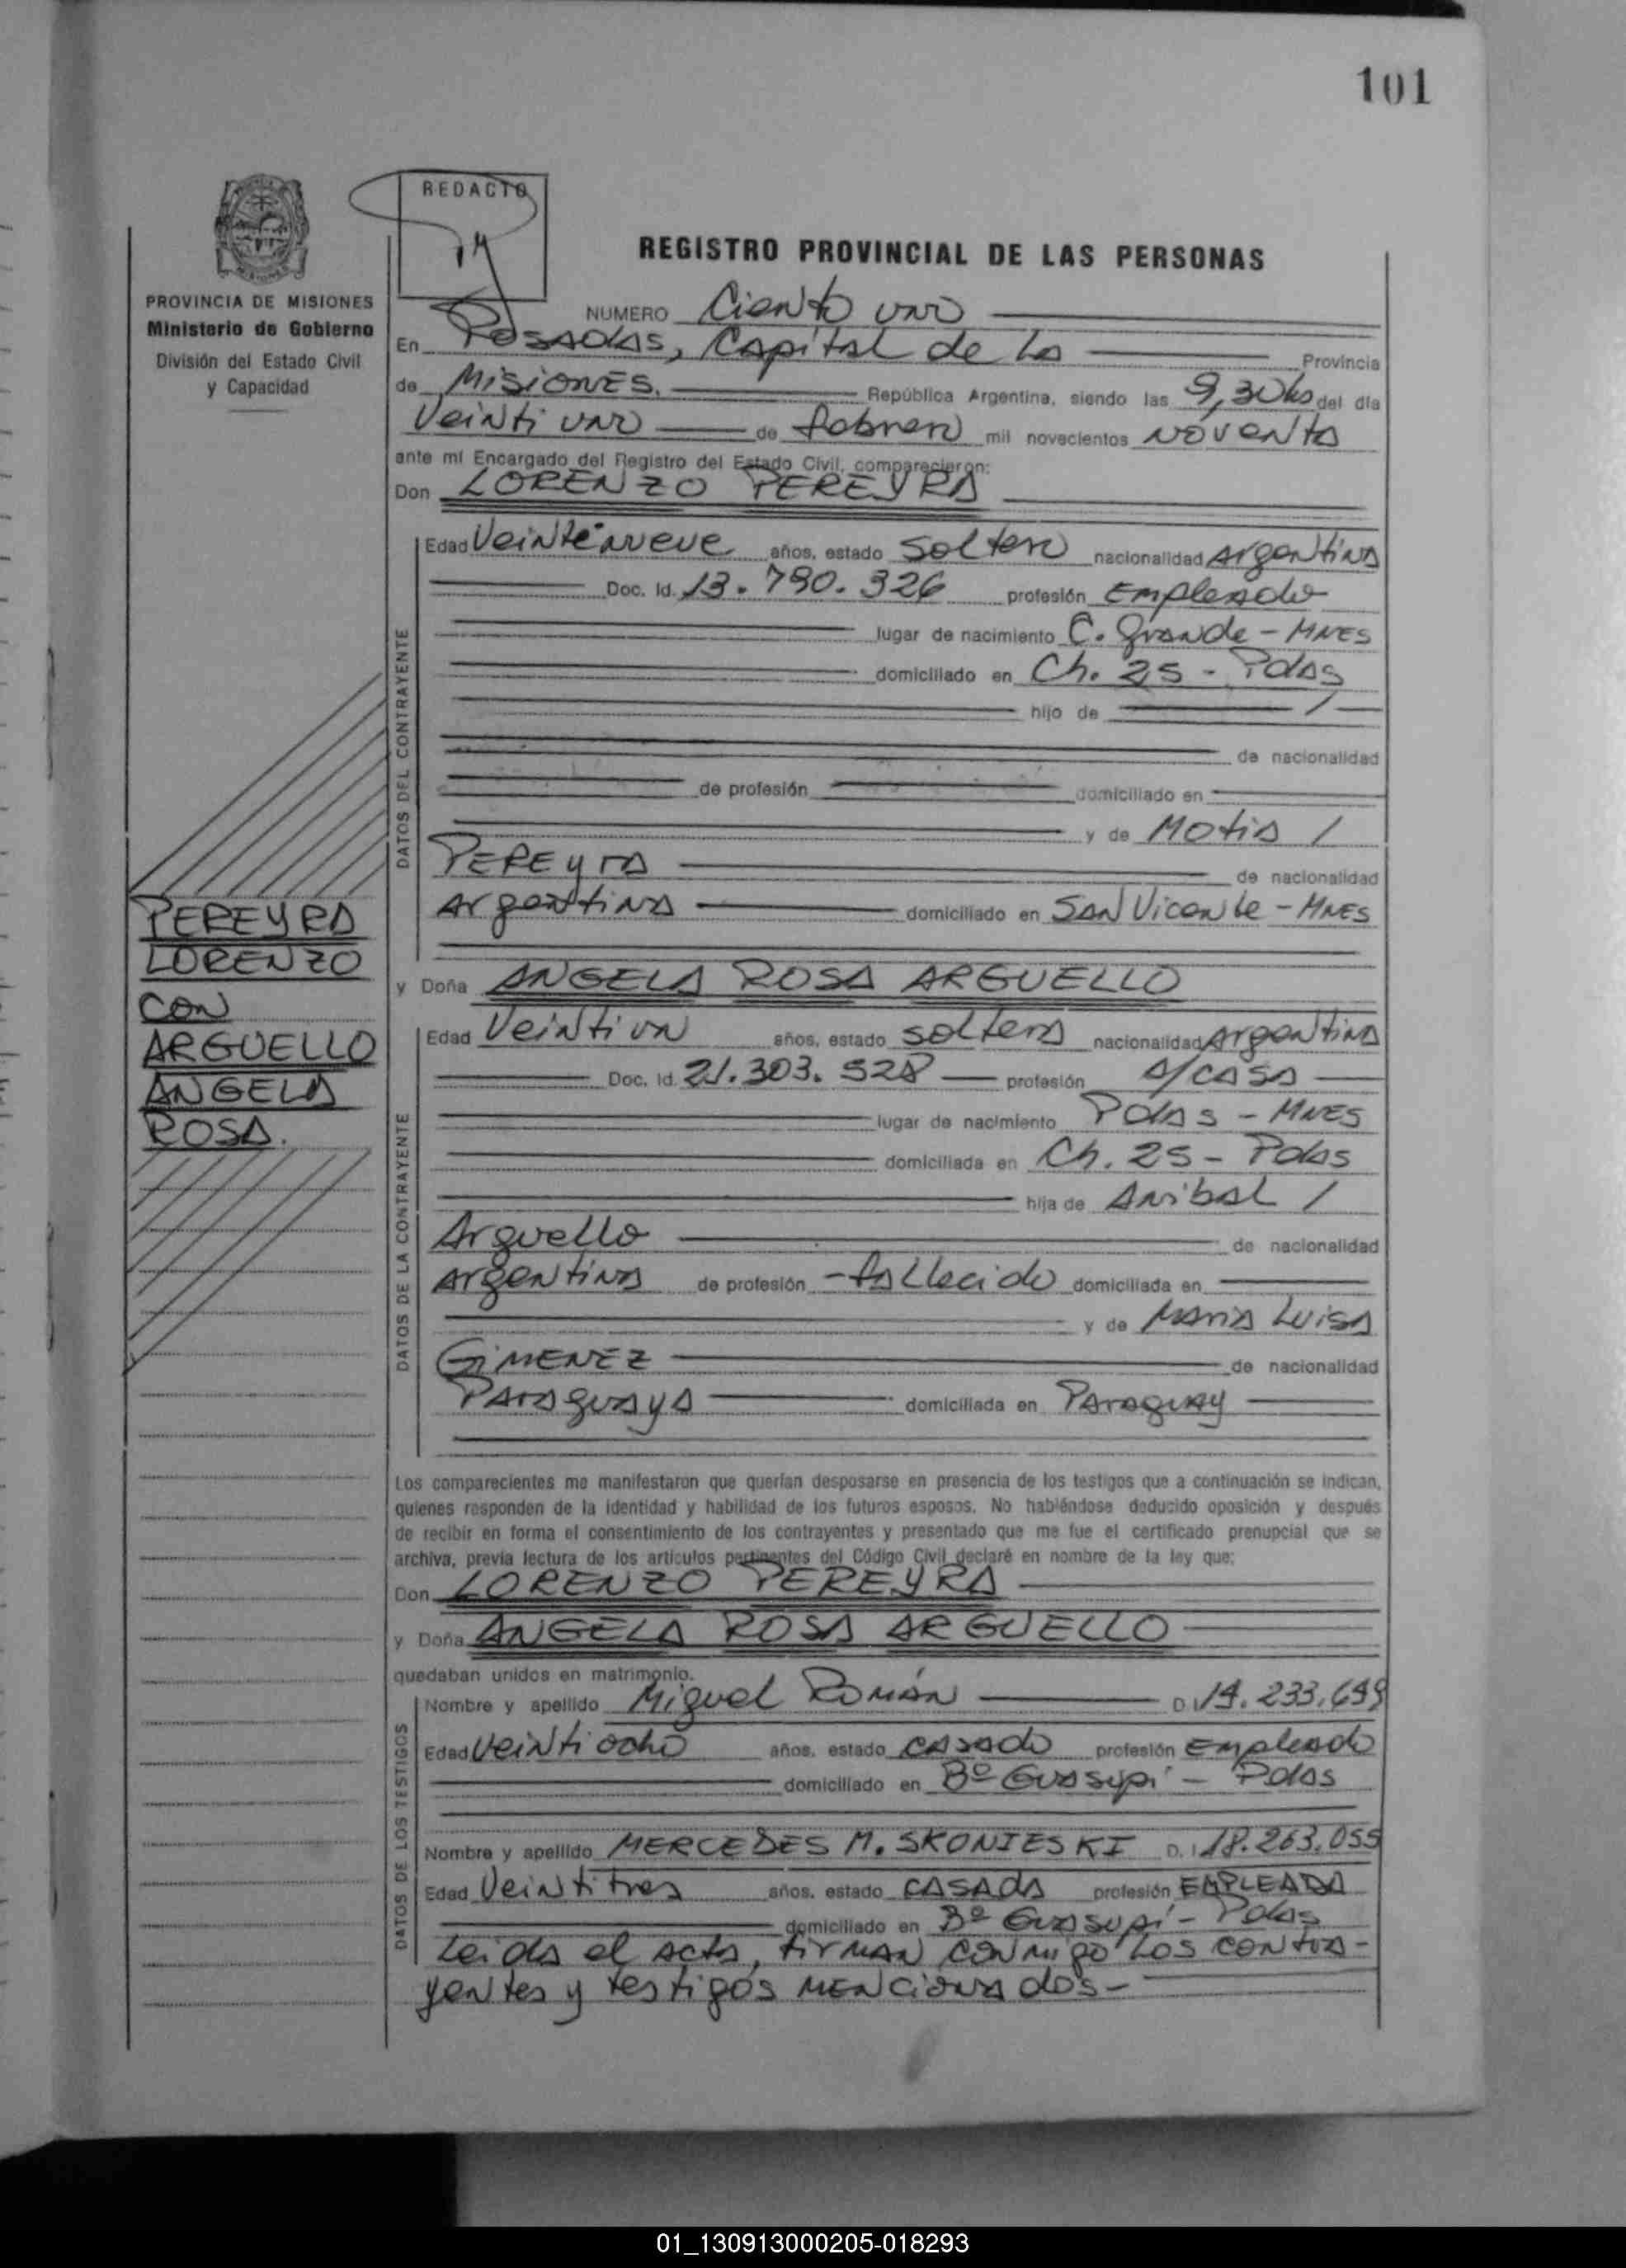 101
REDACTO
REGISTRO PROVINCIAL DE LAS PERSONAS
PROVINCIA DE MISIONES
Ministerio de Gobierno
División del Estado Civil
y Capacidad
NUMERO Ciento uno
En Posadas, Capital de la Provincia
de Misiones. República Argentina, siendo las 9,30 hs del día
Veinti uno de febrero mil novecientos noventa
ante mí Encargado del Registro del Estado Civil, comparecieron:
Don LORENZO PEREYRA
DATOS DEL CONTRAYENTE
Edad Veintenueve años, estado soltero nacionalidad Argentina
Doc. Id. 13.790.326 profesión Empleado
lugar de nacimiento C. Grande - Mnes
domiciliado en Ch. 25 - Pdas
hijo de /
de nacionalidad
de profesión domiciliado en
y de María /
Pereyra de nacionalidad
Argentina domiciliado en San Vicente - Mnes
PEREYRA
LORENZO
CON
ARGUELLO
ANGELA
ROSA.
y Doña ANGELA ROSA ARGUELLO
DATOS DE LA CONTRAYENTE
Edad Veintiun años, estado soltera nacionalidad Argentina
Doc. Id. 21.303.528 profesión A/CASA
lugar de nacimiento Pdas - Mnes
domiciliada en Ch. 25 - Pdas
hija de Anibal /
Arguello de nacionalidad
Argentina de profesión - fallecido domiciliada en
y de María Luisa
GIMENEZ de nacionalidad
Paraguaya domiciliada en Paraguay
Los comparecientes me manifestaron que querían desposarse en presencia de los testigos que a continuación se indican,
quienes responden de la identidad y habilidad de los futuros esposos. No habiéndose deducido oposición y después
de recibir en forma el consentimiento de los contrayentes y presentado que me fue el certificado prenupcial que se
archiva, previa lectura de los artículos pertinentes del Código Civil declaré en nombre de la ley que:
Don LORENZO PEREYRA
y Doña ANGELA ROSA ARGUELLO
quedaban unidos en matrimonio.
DATOS DE LOS TESTIGOS
Nombre y apellido Miguel Román D.I. 14.233.649
Edad Veintiocho años, estado casado profesión Empleado
domiciliado en Bº Guasupí - Pdas
Nombre y apellido MERCEDES M. SKONIESKI D.I. 18.263.055
Edad Veintitres años, estado CASADA profesión EMPLEADA
domiciliado en Bº Guasupí - Pdas
Leida el acta, firman conmigo los contra-
yentes y testigos mencionados-
01_130913000205-018293